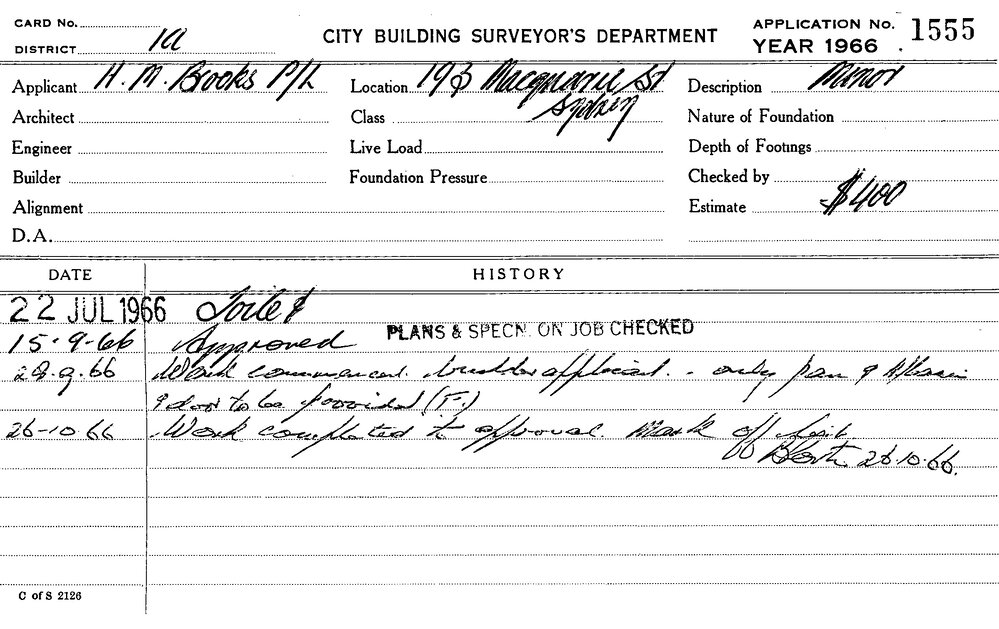 CARD No.
DISTRICT 1a
CITY BUILDING SURVEYOR'S DEPARTMENT
APPLICATION No. 1555
YEAR 1966
Applicant H. M. Brooks P/L
Location 193 Macquarie St
Sydney
Description Minor
Architect
Class
Nature of Foundation
Engineer
Live Load
Depth of Footings
Builder
Foundation Pressure
Checked by
Alignment
Estimate $400
D.A.
DATE HISTORY
22 JUL 1966 Toilet
PLANS & SPECN. ON JOB CHECKED
15.9.66 Approved
28.9.66 Work commenced. builder applicant. - only pan & H/basin
& door to be provided (F.)
26-10-66 Work completed to approval. Mark off
26.10.66.
C of S 2126